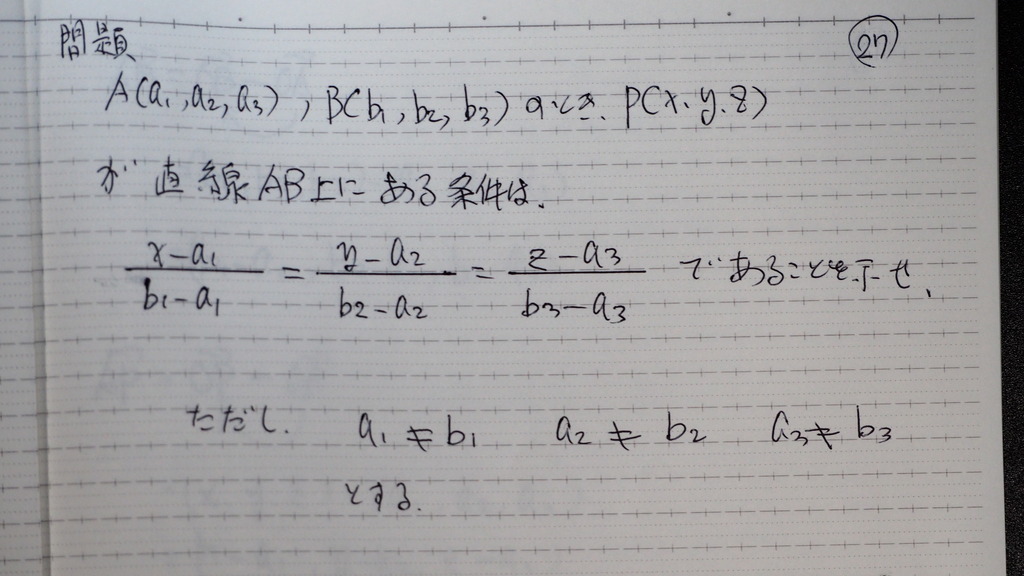 問題 27
A(a₁,a₂,a₃), B(b₁,b₂,b₃)のとき. P(x.y.z)
が直線AB上にある条件は.
(x-a₁)/(b₁-a₁) = (y-a₂)/(b₂-a₂) = (z-a₃)/(b₃-a₃) であることを示せ.
ただし. a₁≠b₁ a₂≠b₂ a₃≠b₃
とする.